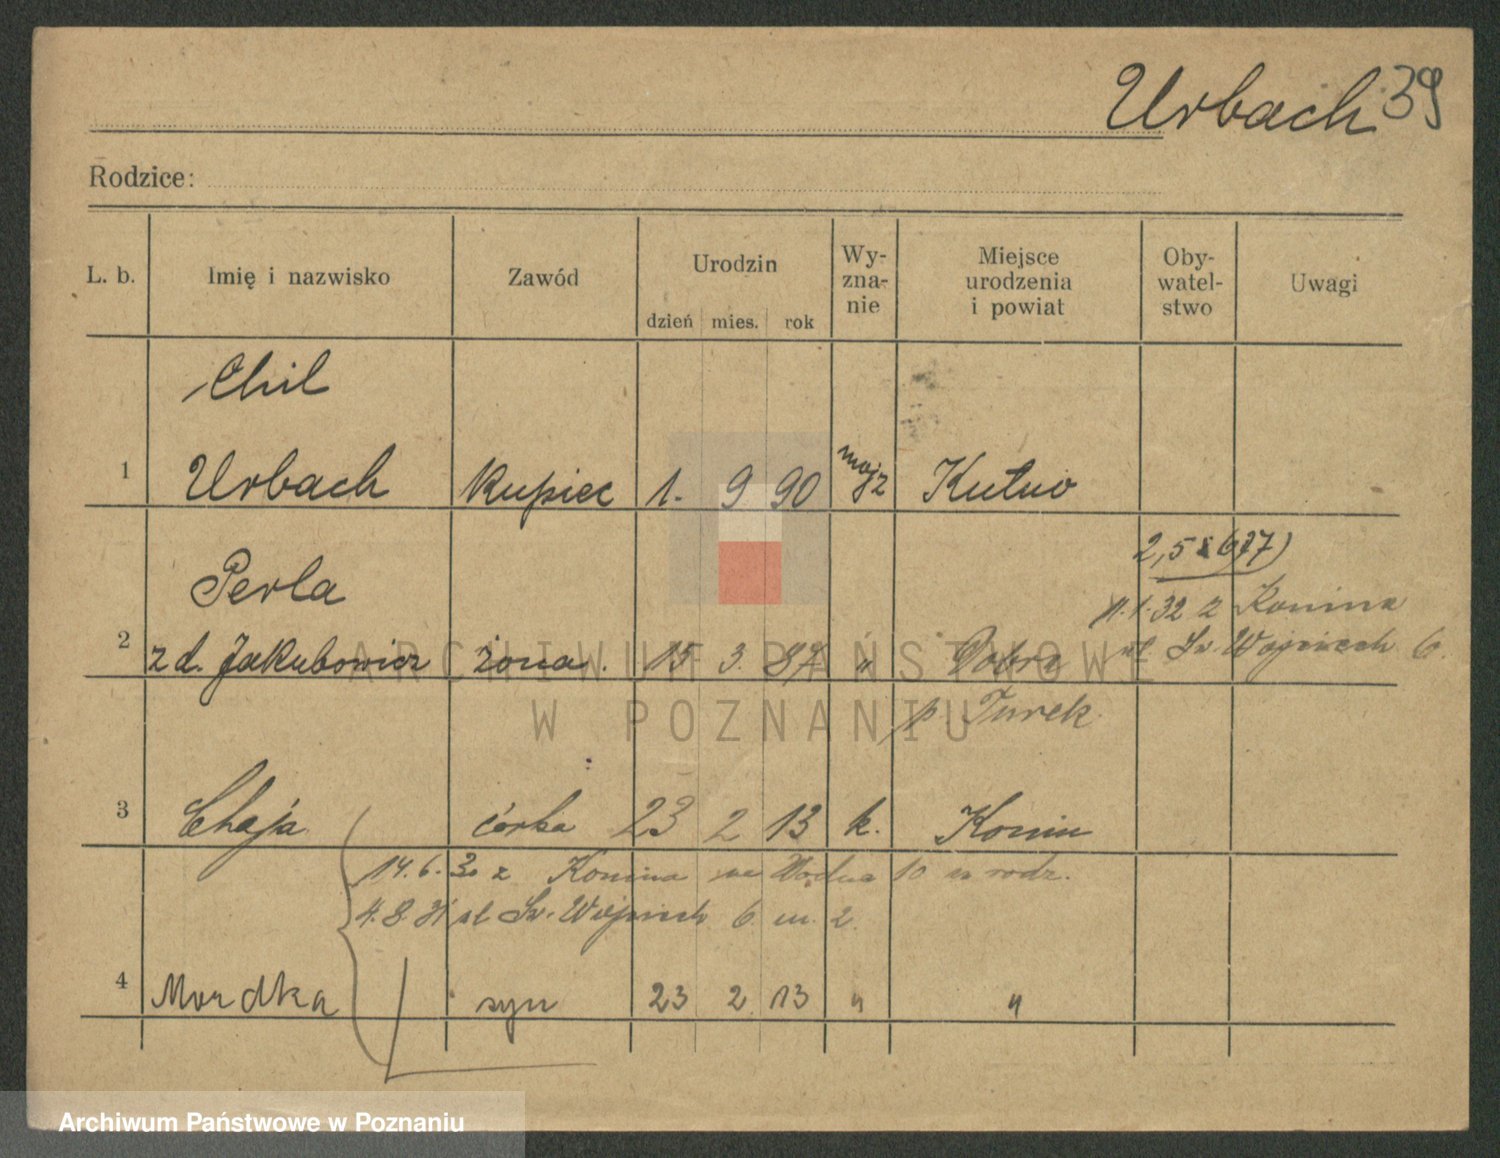 Urbach 39
Rodzice:
L. b. Imię i nazwisko Zawód Urodzin dzień mies. rok Wy-zna-nie Miejsce urodzenia i powiat Oby-watel-stwo Uwagi
Chil
1 Urbach kupiec 1. 9 90 mojż Kutno
2,5 6)
Perla
1.32 z Konina
2 z d. Jakubowicz żona. 15 3. 87 " Dobra ul Św. Wojciech 6.
p. Turek
3 Chaja córka 23 2 13 k. Konin
14.6.30 z Konina na Wodna 10 u rodz.
4.8.31 ul Św. Wojciech 6 m. 2.
4 Mordka syn 23 2 13 " "
ARCHIWUM PAŃSTWOWE
W POZNANIU
Archiwum Państwowe w Poznaniu